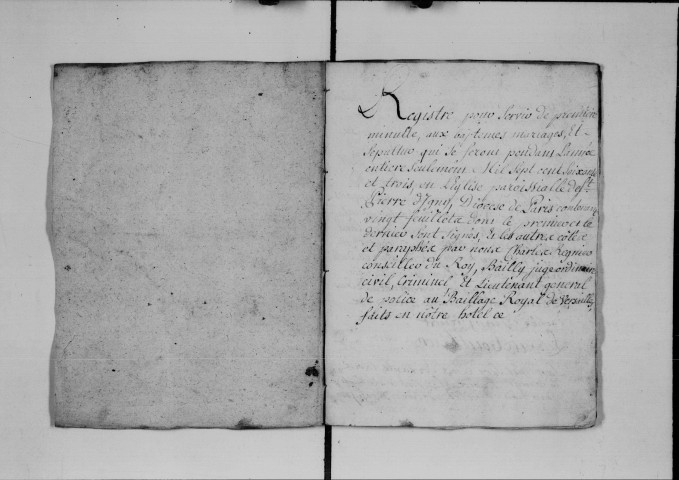 Registre pour servir de premiere
minutte, aux baptemes mariages, et
sepultur qui se feront pendant L'année
entiere seulement Mil sept cent soixante
et trois, en L'Eglise paroissialle de St.
Pierre d'Igny, Diocese de Paris contenant
vingt feuillets dont le premier et le
dernier sont signés, et les autres cottés
et paraphés par nous Charles Regnier
conseiller du Roy, Bailly juge ordinaire
civil, Criminel et Lieutenant general
de police au Baillage Royal de Versailles,
faits en nôtre hotel ce